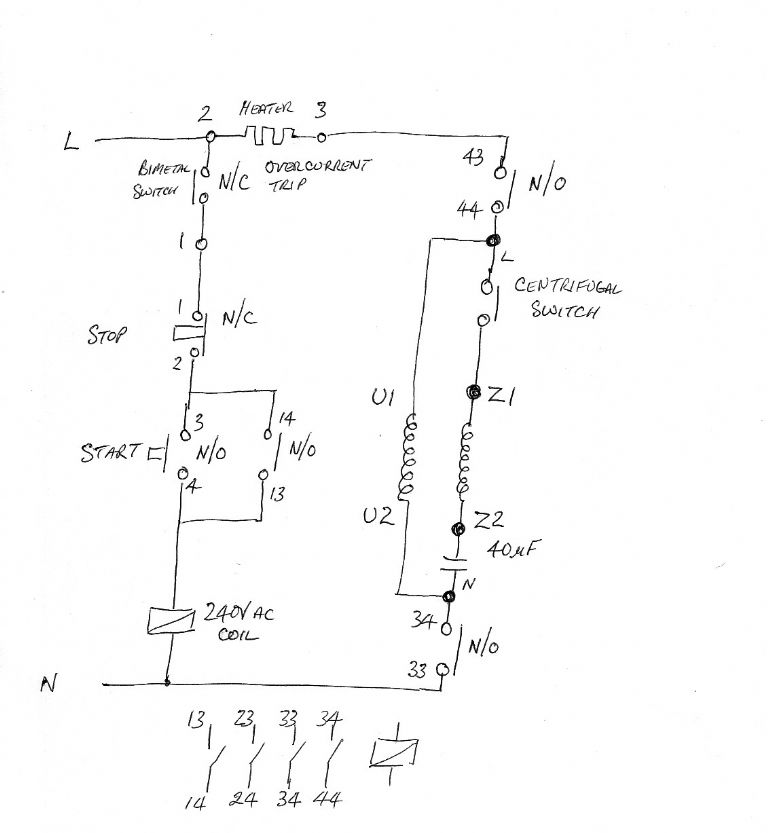 2 HEATER 3
L
BIMETAL
SWITCH
N/C
OVERCURRENT
TRIP
43
N/O
44
1
L
CENTRIFUGAL
SWITCH
1
N/C
STOP
2
U1
Z1
3
14
START
N/O
N/O
4
13
U2
Z2
40µF
240V AC
COIL
N
34
N/O
33
N
13 23 33 34
14 24 34 44